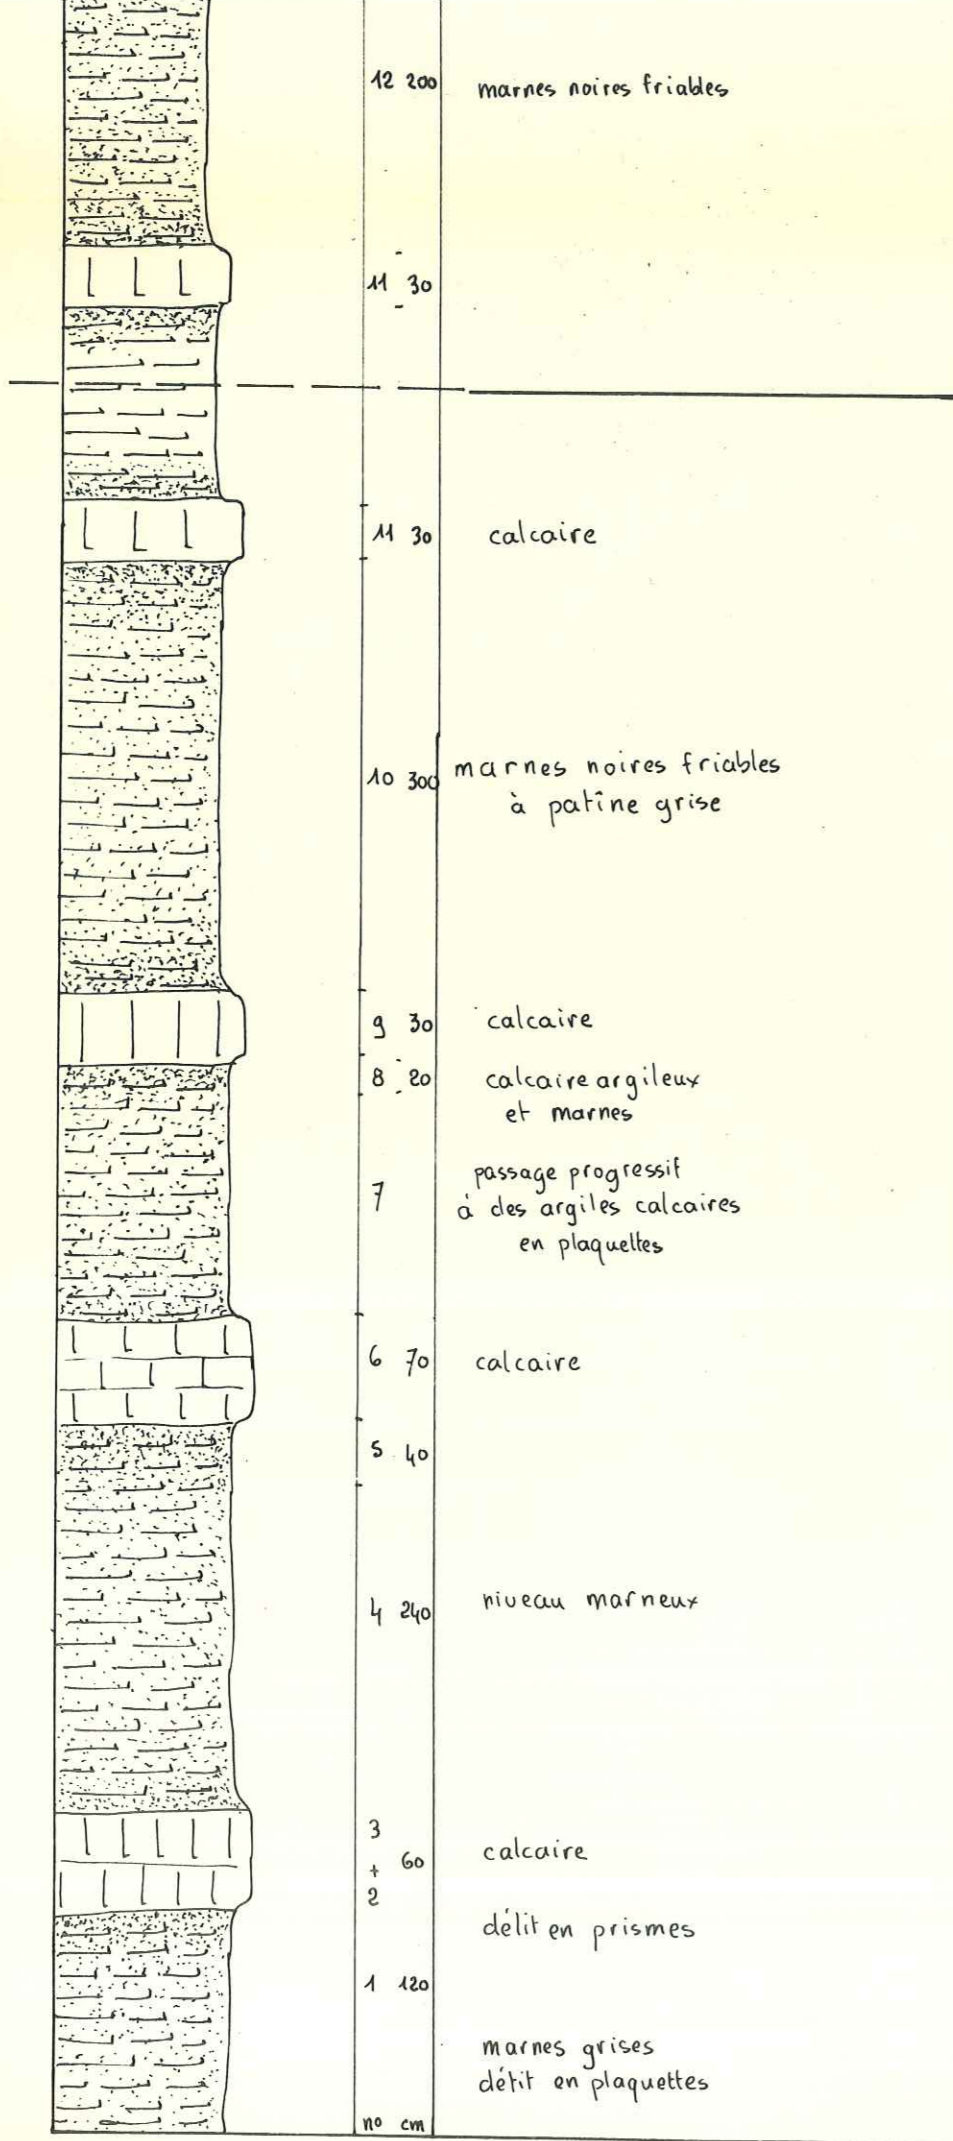 12 200 marnes noires friables
11 30
11 30 calcaire
10 300 marnes noires friables
à patîne grise
9 30 calcaire
8 20 calcaire argileux
et marnes
passage progressif
7 à des argiles calcaires
en plaquettes
6 70 calcaire
5 40
4 240 niveau marneux
3
+ 60 calcaire
2
délit en prismes
1 120
marnes grises
détit en plaquettes
no cm